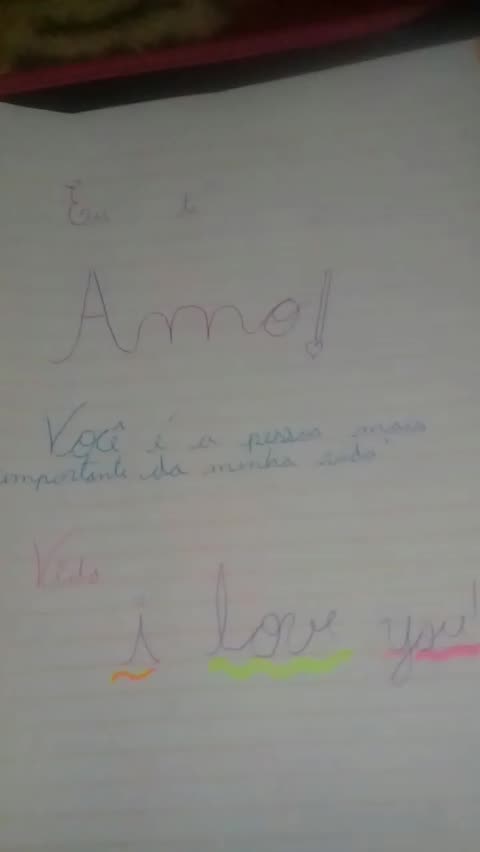 Eu t
Amo!
Você é a pessoa mais
importante da minha vida!
Vida
i love you!